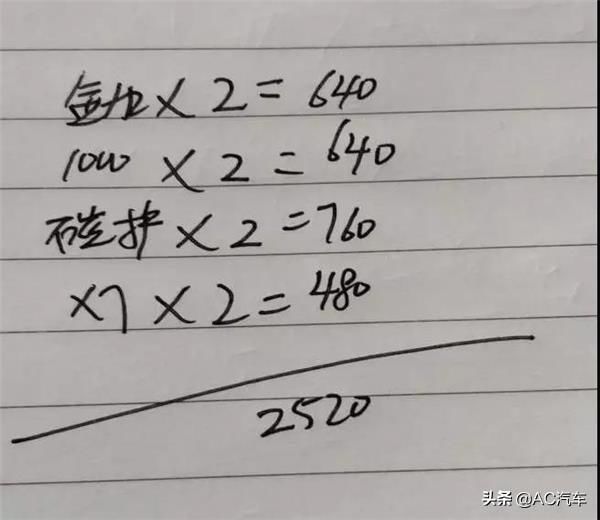 金加 × 2 = 640
1000 × 2 = 640
磁护 × 2 = 760
X7 × 2 = 480
2520
头条 @AC汽车